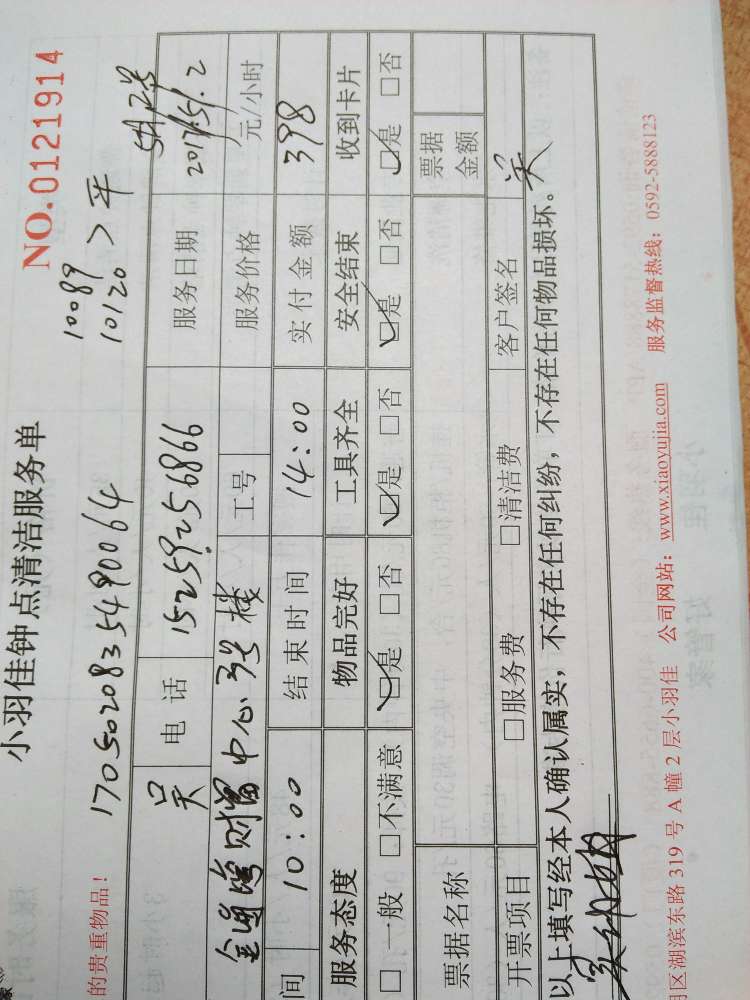 小羽佳钟点清洁服务单
NO.0121914
的贵重物品！
1705020835490064
10089
10120 > 平
吴 电话 15259256866 服务日期 2017.5.2
中心3号楼 工号 服务价格 元/小时
间 10:00 结束时间 14:00 实付金额 398
服务态度 物品完好 工具齐全 安全结束 收到卡片
□一般 □不满意 ☑是 □否 ☑是 □否 ☑是 □否 ☑是 □否
票据名称 票据金额
开票项目 □服务费 □清洁费 客户签名 吴
以上填写经本人确认属实，不存在任何纠纷，不存在任何物品损坏。
区湖滨东路 319 号 A 幢 2 层小羽佳 公司网站：www.xiaoyujia.com 服务监督热线：0592-5888123